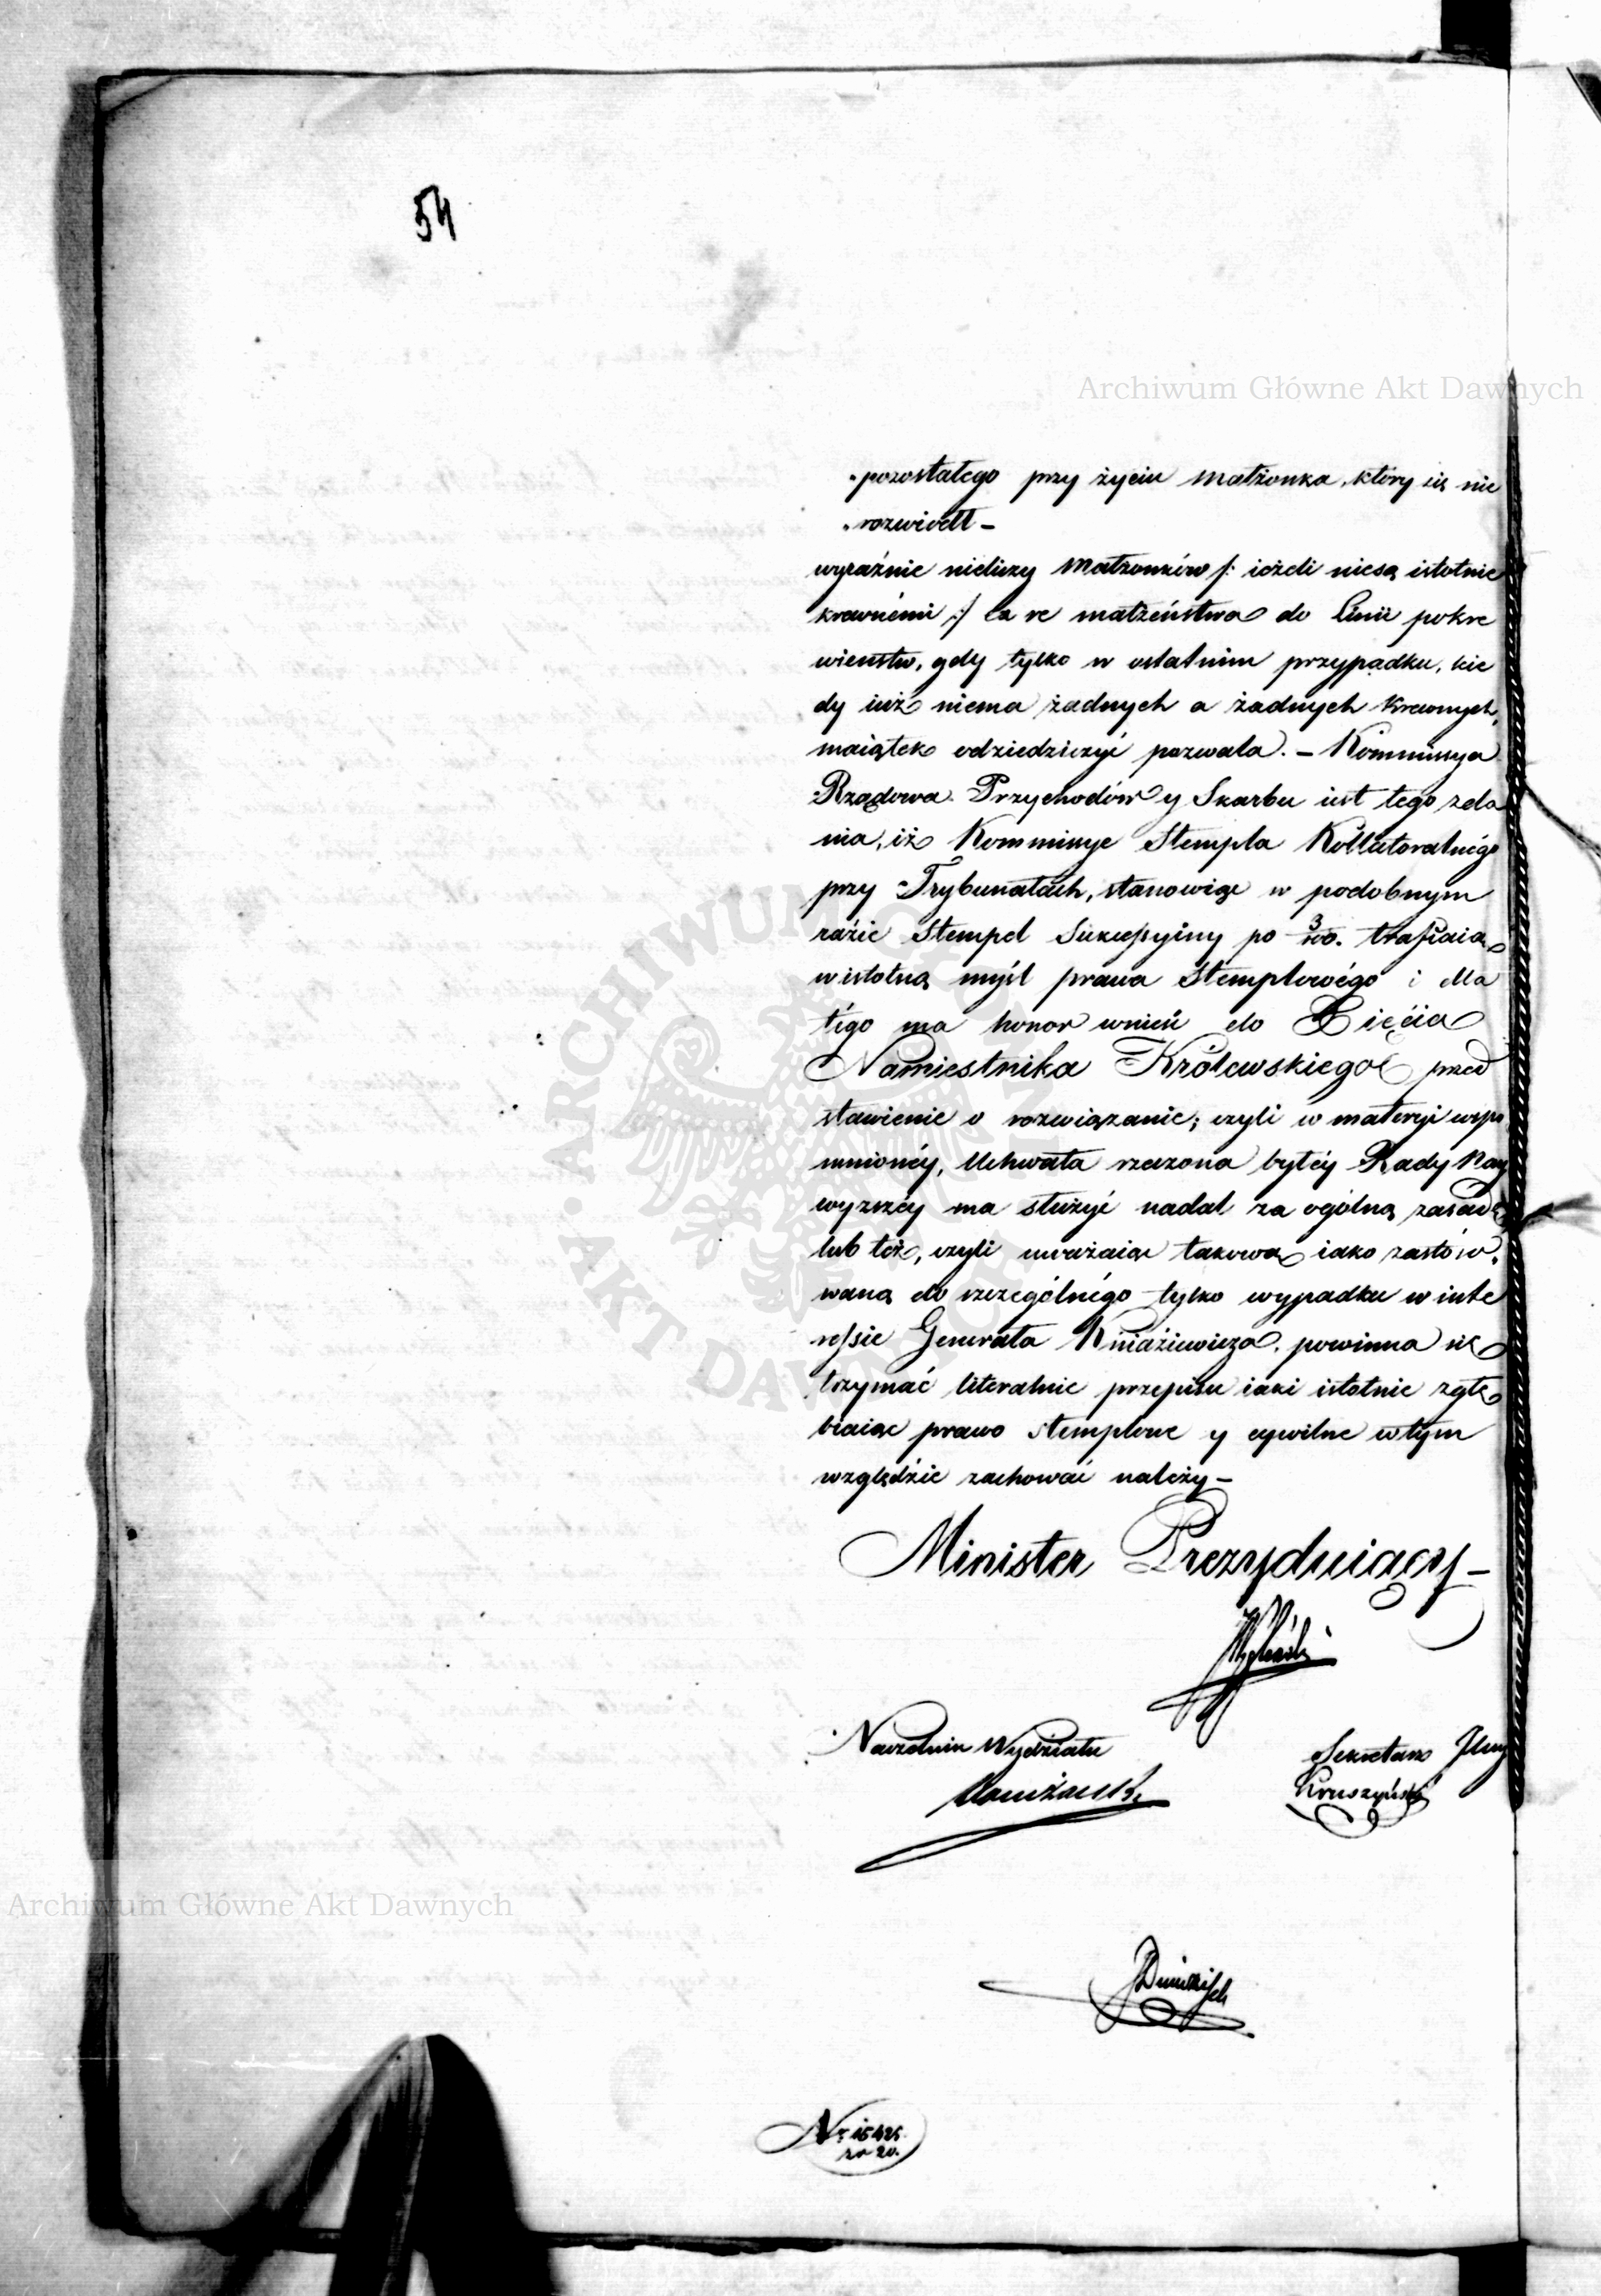 54
Archiwum Główne Akt Dawnych
"pozostałego przy życiu małżonka, który się nie
"rozwiodł –
wyraźnie nieliczy Małżonków /: ieżeli niesą istotnie
krewnémi :/ ex re małżeństwa do Linii pokre
wieństw, gdy tylko w ostatnim przypadku, kie
dy iuż niema żadnych a żadnych Krewnych,
maiątek odziedziczyć pozwala. – Kommissya
Rządowa Przychodów y Skarbu iest tego zda
nia, iż Kommissye Stempla Kollateralnégo
przy Trybunałach, stanowiąc w podobnym
razie Stempel Sukcessyiny po 3/100. trafiaią
w istotną myśl prawa Stemplowégo i dla
tégo ma honor wnieść do Xięcia
Namiestnika Królewskiego przed
stawienie o rozwiązanie; czyli w materyi wspo
mnionéy, Uchwała rzeczona byłéy Rady Nay
wyższéy ma służyć nadal za ogólną zasadę
lub też, czyli uważaiąc takową iako zastóso,
waną do szczególnégo tylko wypadku w inte
ressie Generała Kniaziewicza, powinna się
trzymać literalnie przepisu iaki istotnie zgłę
biaiąc prawo stemplowe y cywilne w tym
względzie zachować należy –
Minister Prezyduiący –
Naczelnik Wydziału
Sekretarz Jlny
Kruszyński
Archiwum Główne Akt Dawnych
Nr 15425
zr 20.
ARCHIWUM GŁÓWNE
AKT DAWNYCH